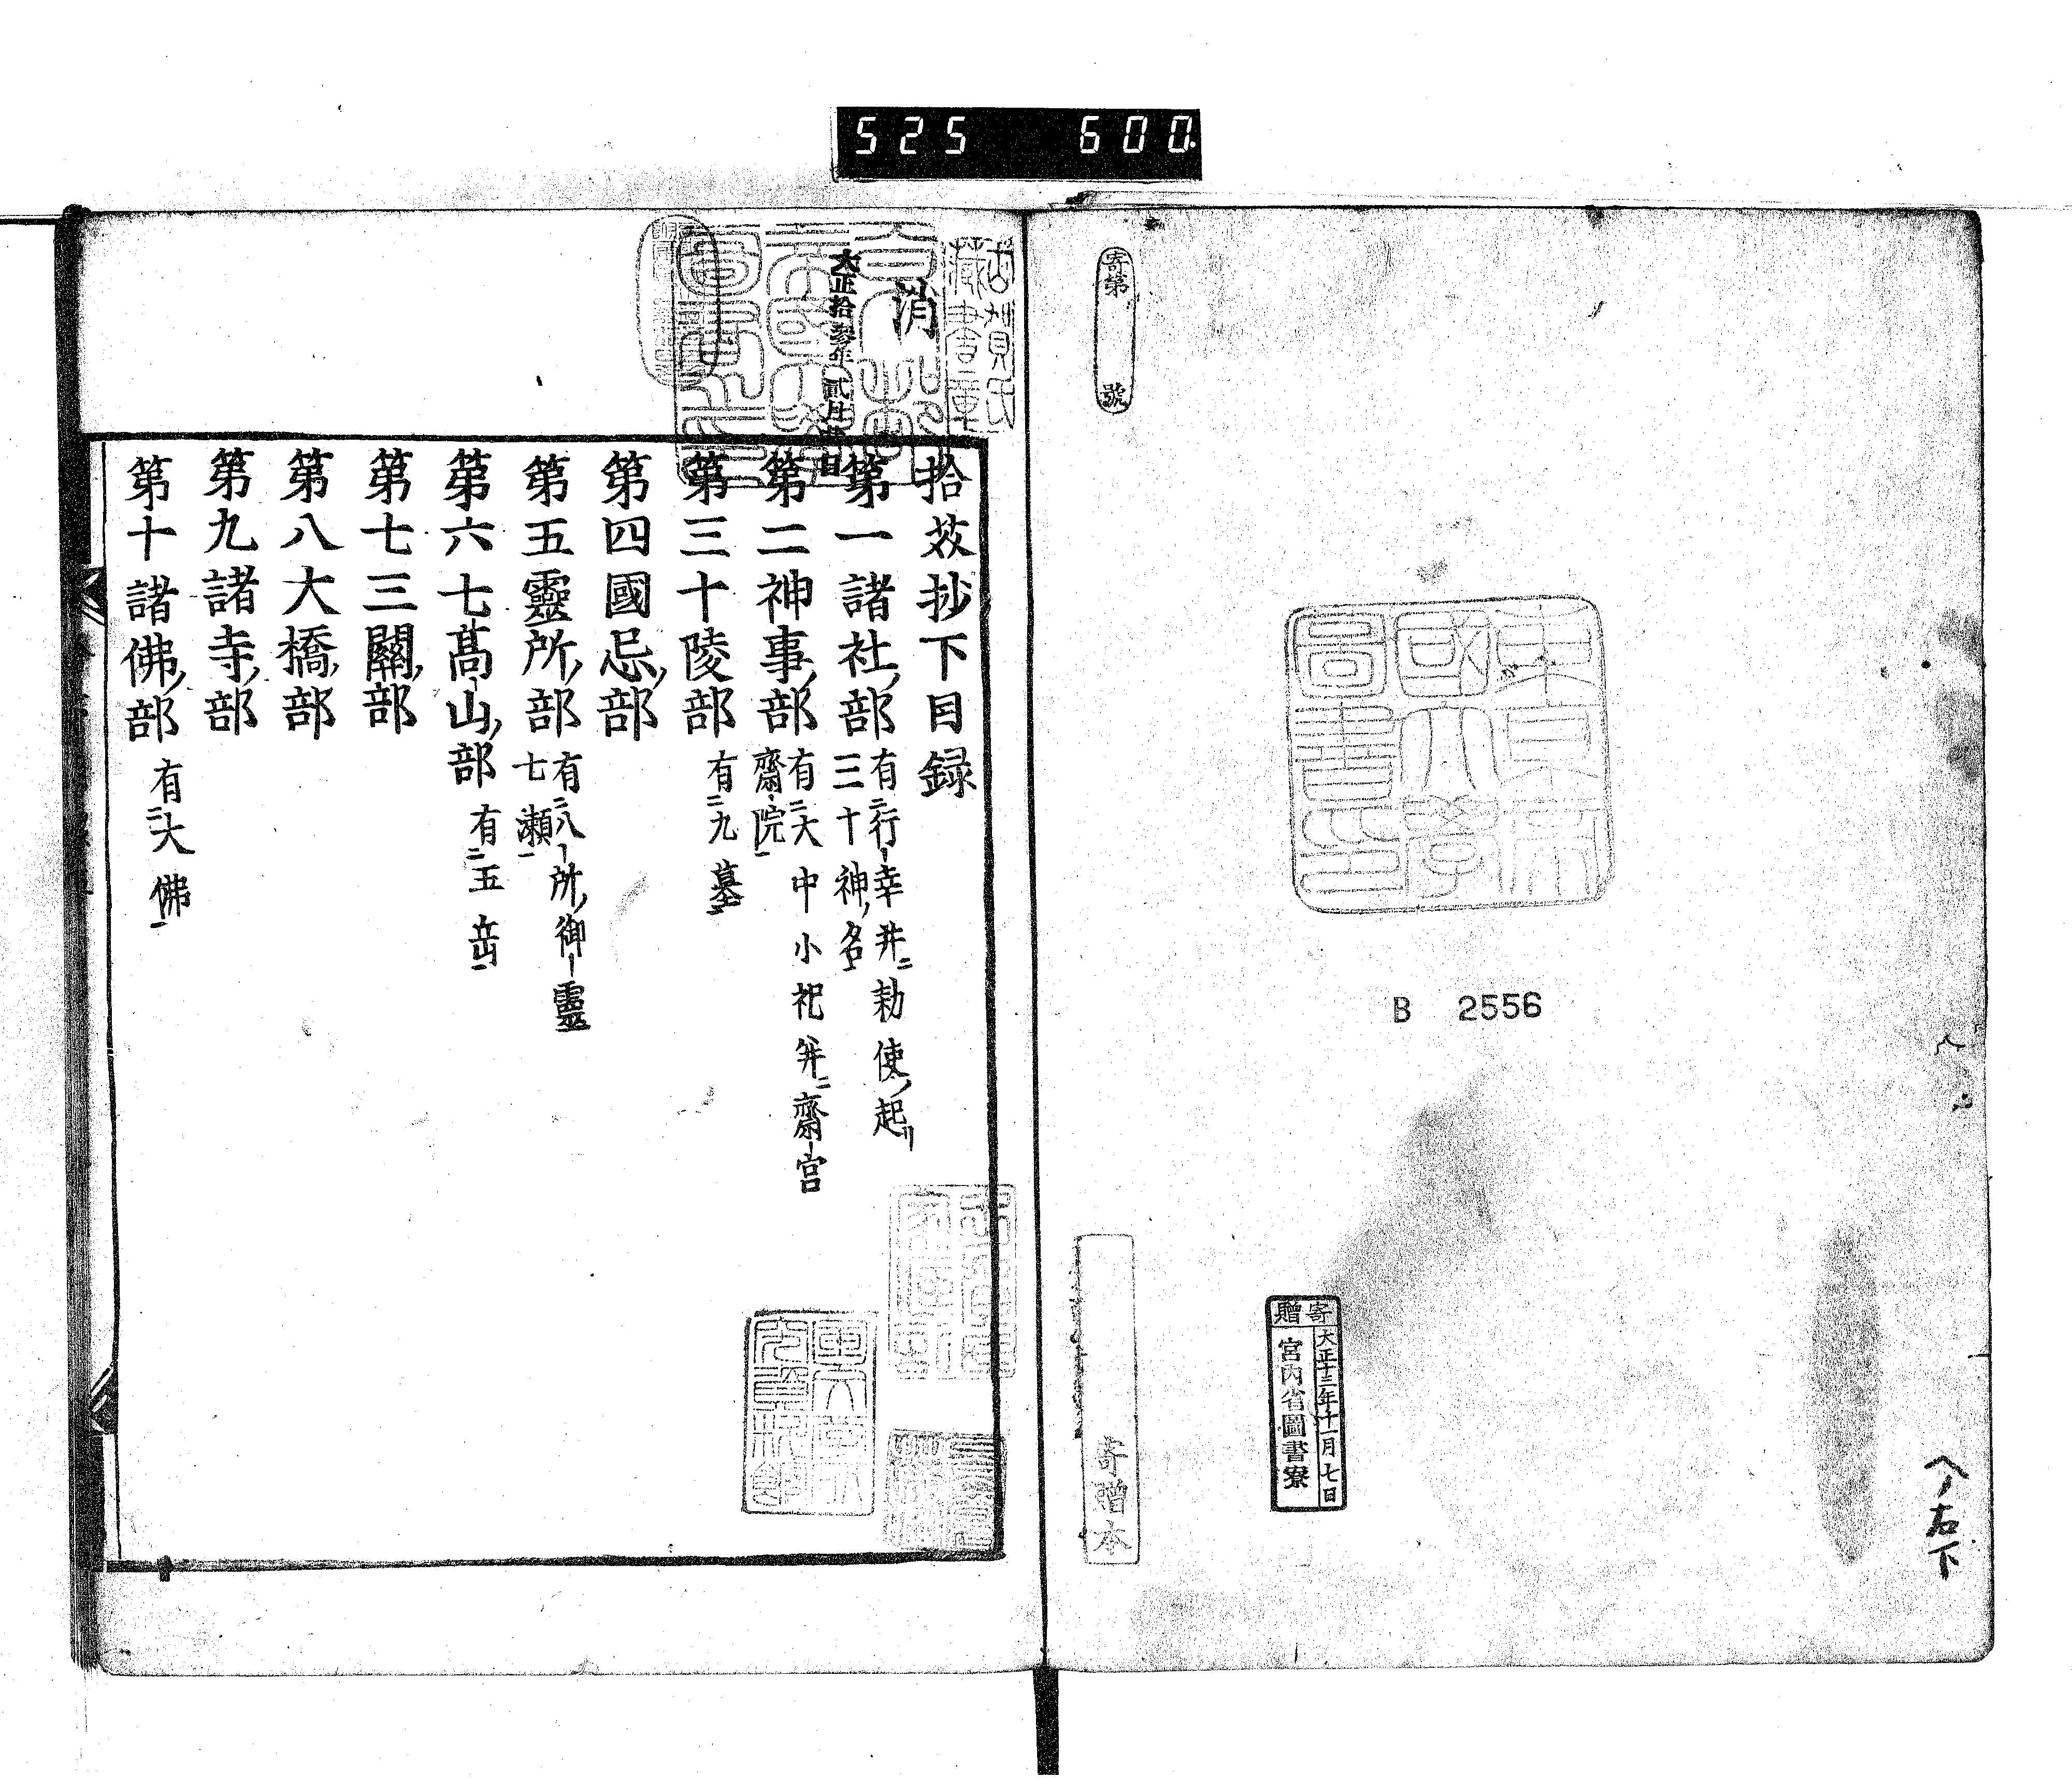 525 600
寄第 號
東京帝
國大學
圖書印
B 2556
寄贈
大正十三年十一月七日
宮内省圖書寮
寄贈本
ヘノ右下
古賀氏
藏書章
消
大正拾參年貳月 日
拾芥抄下目録
第一諸社部
有行幸并勅使起
三十神名
第二神事部
有大中小祀并齋宮
齋院
第三十陵部
有九墓
第四國忌部
第五靈所部
有八所御靈
七瀬
第六七髙山部
有五岳
第七三關部
第八大橋部
第九諸寺部
第十諸佛部
有大佛